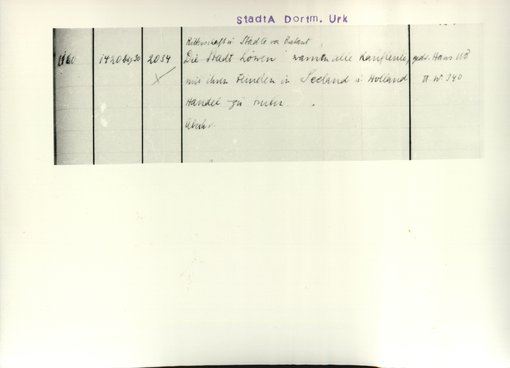 StadtA Dortm. Urk
Ritterschaft u Städte von Brabant
1420 Aug 30 2034 Die Stadt Löwen warnt alle Kaufleute, gedr. Hans UB
mit ihren Feinden in Seeland u Holland VI No 340
Handel zu treiben.
Abschr.